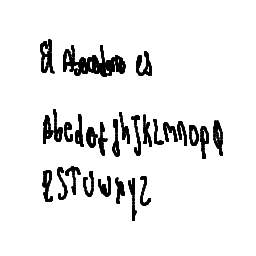 El Abecedario es
AbcdefghIJKLMNOPQ
RSTUVWXYZ